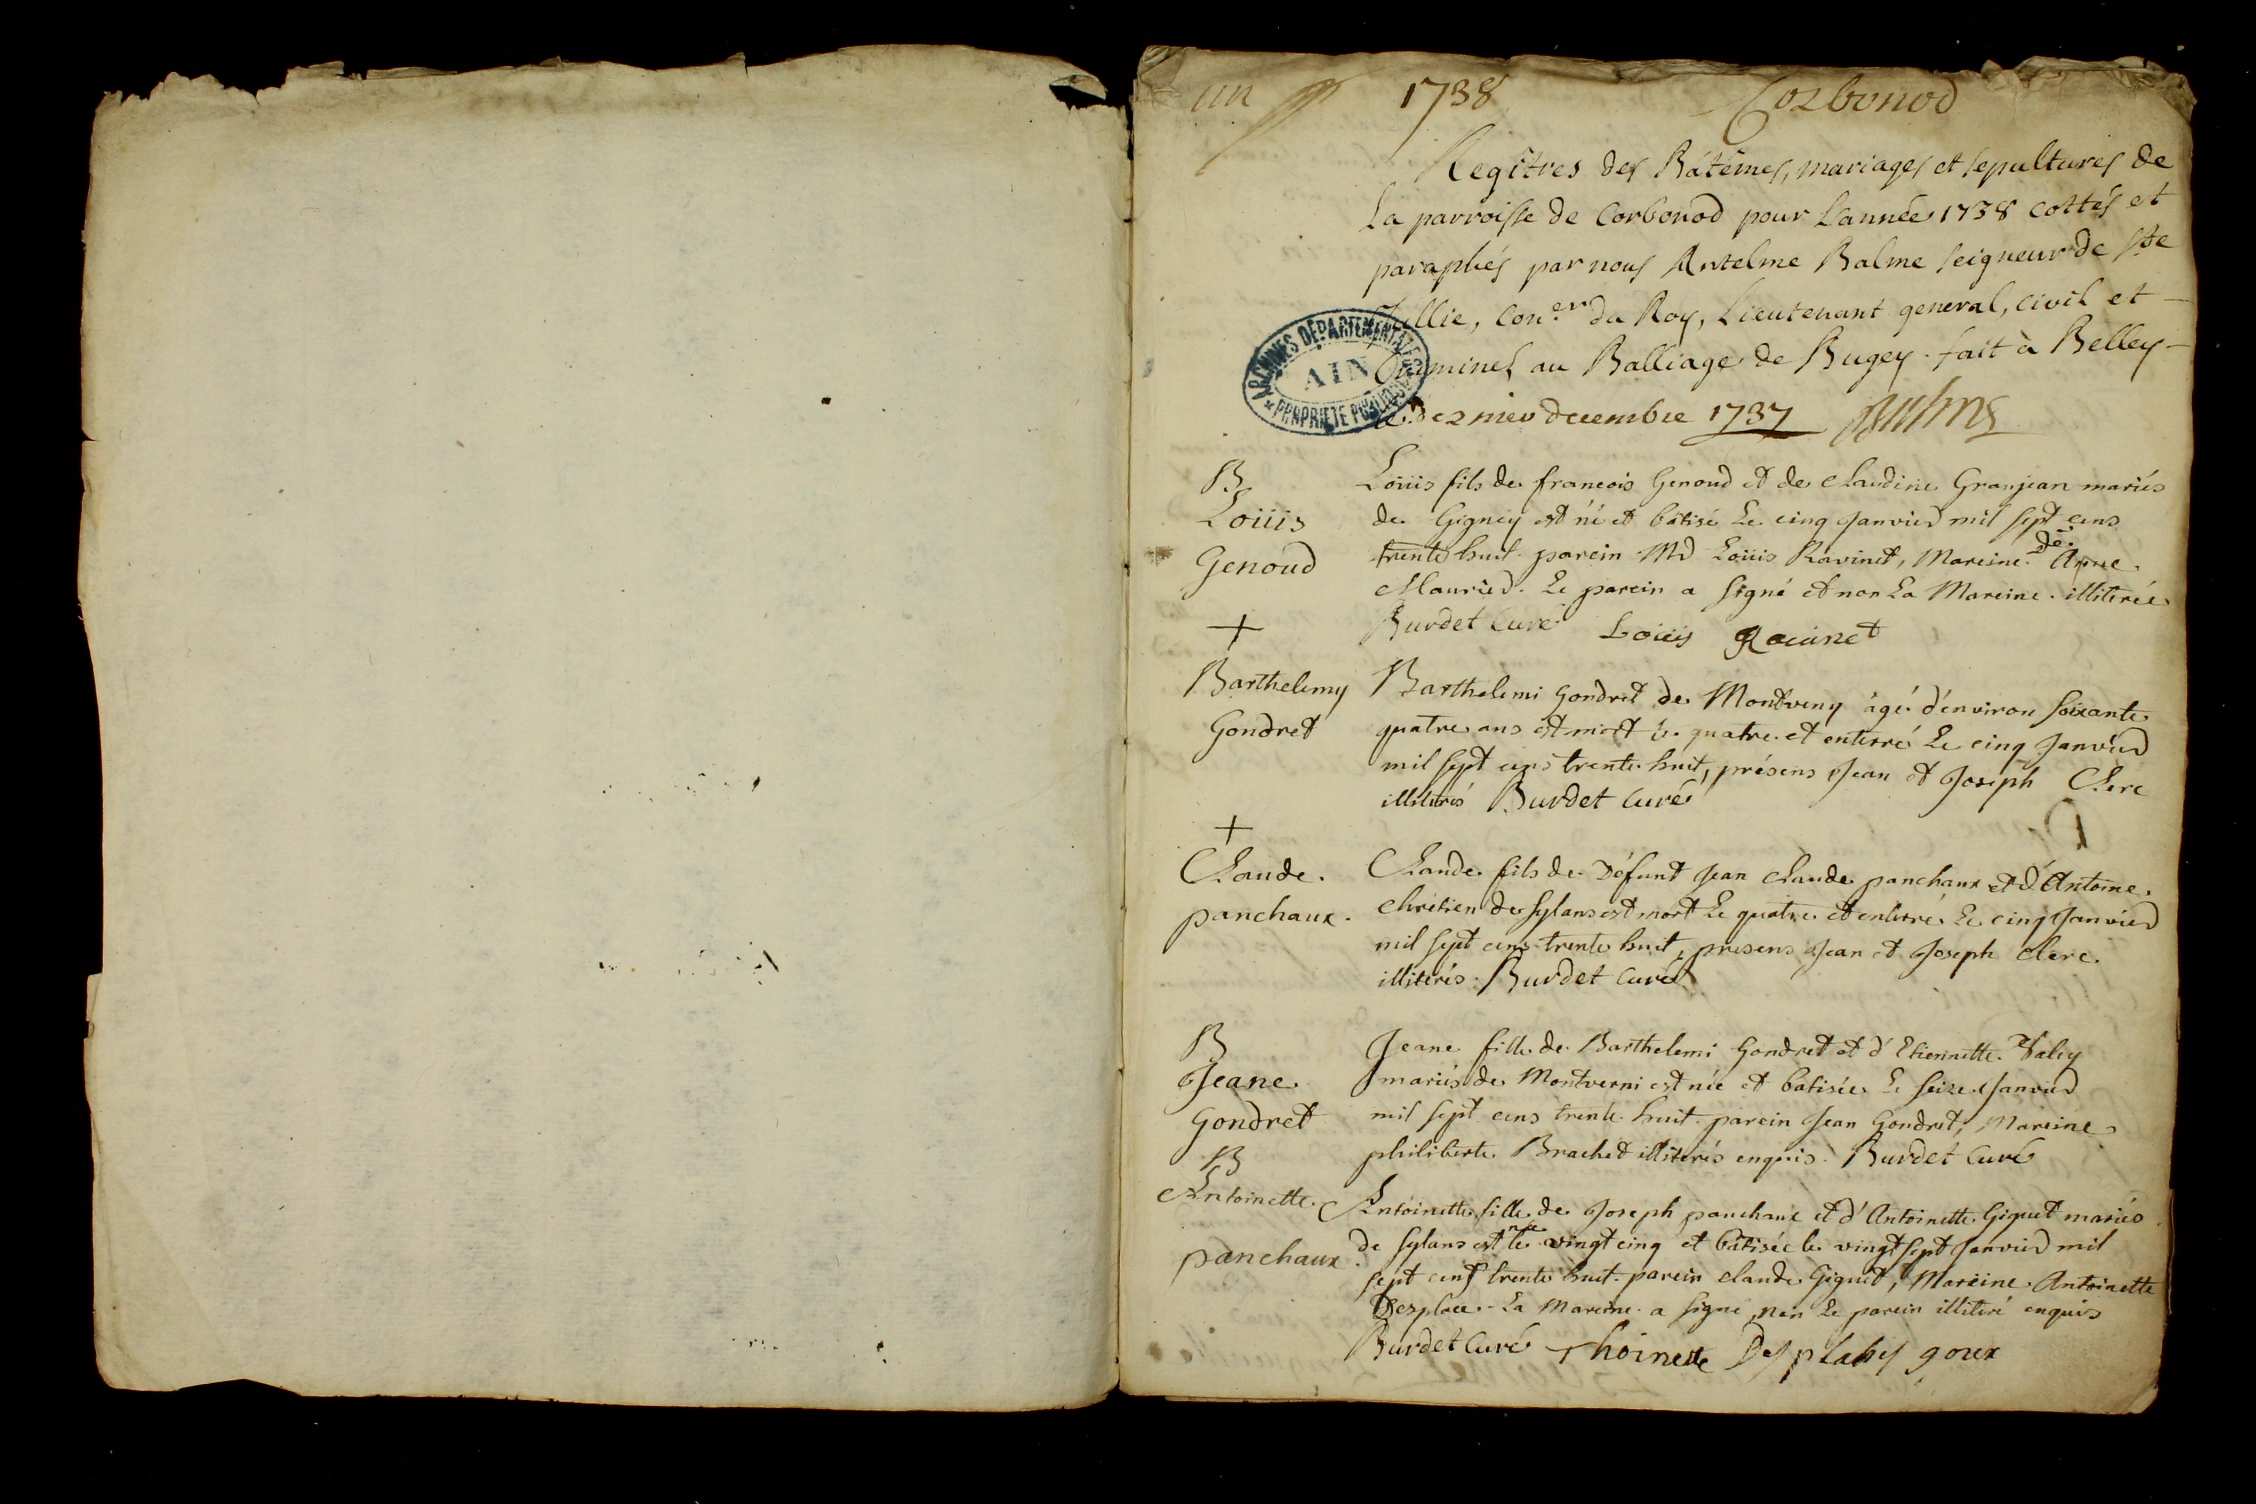 un 1738 Corbonod
Regîtres des Bâtêmes, mariages et sepultures de
La parroisse de Corbonod pour L'année 1738 cottés et
paraphés par nous Antelme Balme seigneur de Ste
Jullie, Con.er du Roy, Lieutenant general, civil et
Criminel au Balliage de Bugey. fait à Belley
le dernier decembre 1737 Balme
ARCHIVES DÉPARTEMENTALES
AIN
* PROPRIÉTÉ PUBLIQUE *
B
Loüis
Genoud
Loüis fils de francois Genoud et de Claudine Granjean mariés
de Gigney est né et bâtisé Le cinq Janvier mil sept cens
trente huit parein Md Loüis Ravinet, Mareine de. Anne
Maurier. Le parein a signé et non La Mareine illiterée
Burdet Curé Loüis Racinet
+
Barthelemy
Gondret
Barthelemi Gondret de Montveny âgé d'environ soixante
quatre ans est mort le quatre et enterré Le cinq Janvier
mil sept cens trente huit, présens Jean et Joseph Clerc
illiterés Burdet Curé
+
Claude.
panchaux.
Claude fils de Défunt Jean Claude panchaux et d'Antoine
Chretien de Sylans est mort Le quatre et enterré Le cinq Janvier
mil sept cens trente huit, presens Jean et Joseph Clerc.
illiterés. Burdet Curé
B
Jeane
Gondret
Jeane fille de Barthelemi Gondret et d'Etiennette
mariés de Montverni est née et batisée Le seize Janvier
mil sept cens trente huit. parein Jean Gondret, Mareine
philiberte Brachet illiterés enquis. Burdet Curé
B
Antoinette.
panchaux
Antoinette fille de Joseph panchaux et d'Antoinette Giguet mariés
de Sylans est née le vingt cinq et bâtisée le vingt sept Janvier mil
sept cens trente huit. parein Claude Giguet, Mareine Antoinette
Desplace. La Mareine a signé, non Le parein illiteré enquis
Burdet Curé Thoinette Desplahes goux